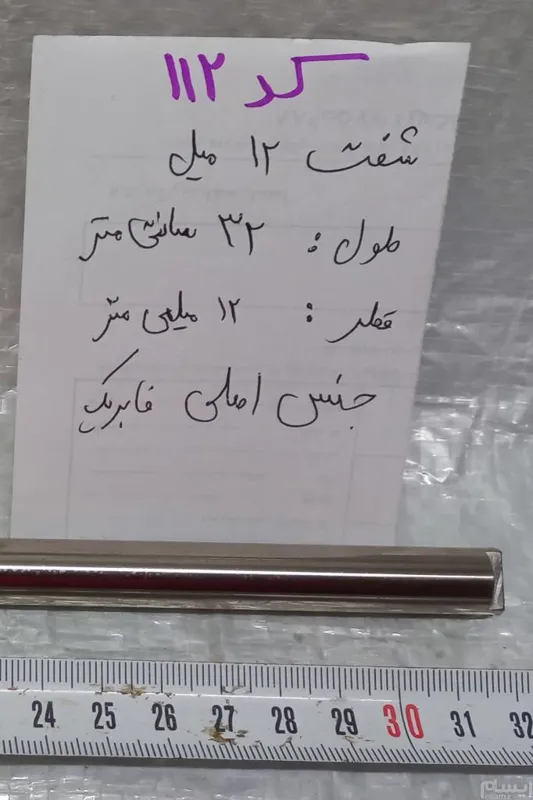 کد ۱۱۲
شفت ۱۲ میل
طول : ۳۲ سانتی متر
قطر : ۱۲ میلی متر
جنس اصلی فابریک
24 25 26 27 28 29 30 31 32
ایسام